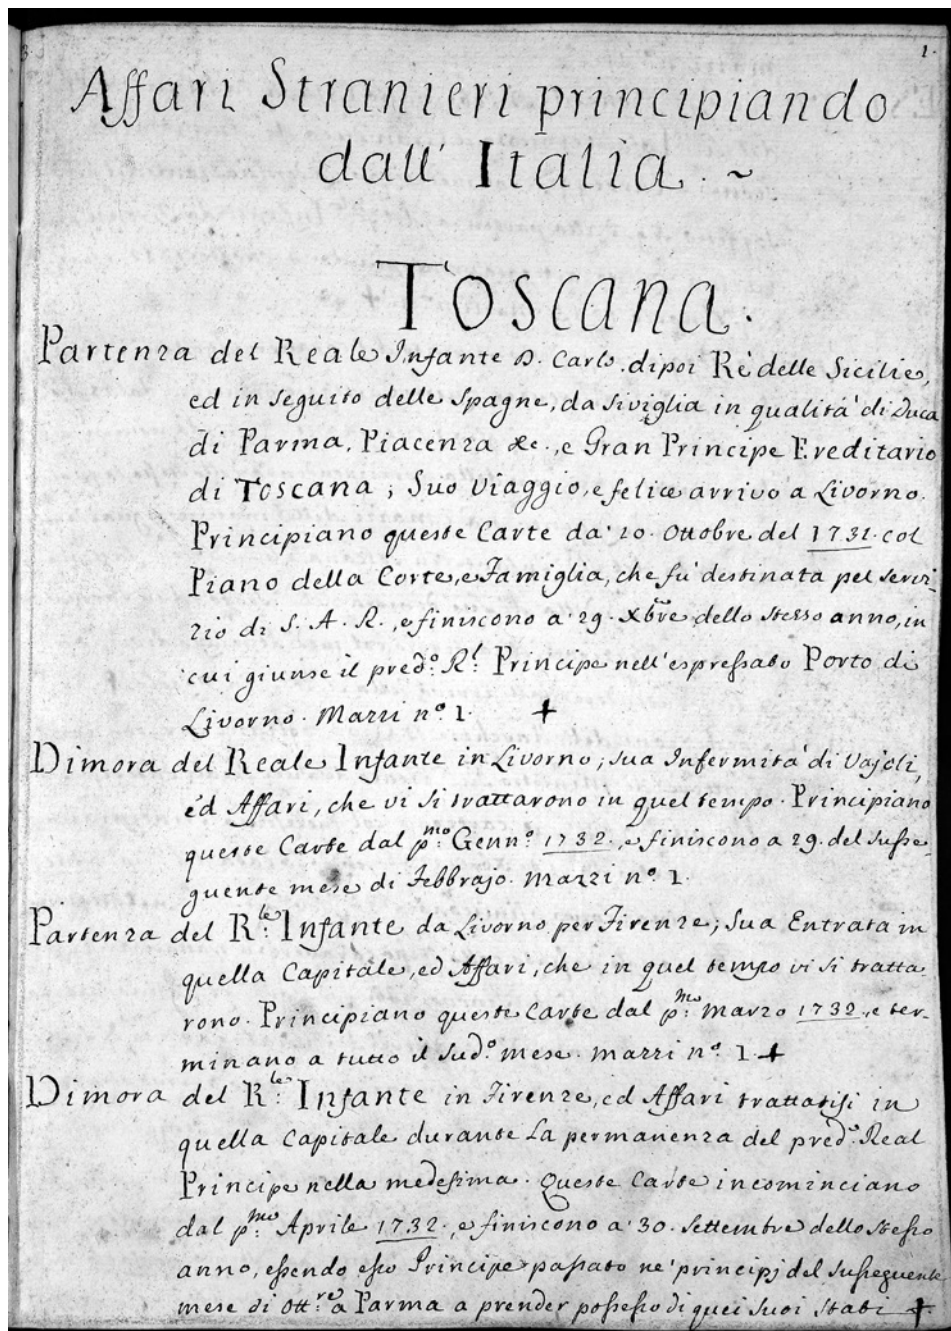 1.
Affari Stranieri principiando
dall' Italia. ~
Toscana.
Partenza del Reale Infante D. Carlo, dipoi Rè delle Sicilie,
ed in seguito delle Spagne, da Siviglia in qualità di Duca
di Parma, Piacenza &c., e Gran Principe Ereditario
di Toscana; Suo Viaggio, e felice arrivo a Livorno.
Principiano queste Carte da' 20. Ottobre del 1731. col
Piano della Corte, e Famiglia, che fù destinata pel servi-
zio di S. A. R., e finiscono a' 29. Xbre dello stesso anno, in
cui giunse il pred.º R.l Principe nell'espressato Porto di
Livorno. Mazzi nº. 1. +
Dimora del Reale Infante in Livorno; sua Infermità di Vajoli,
ed Affari, che vi si trattarono in quel tempo. Principiano
queste Carte dal p.mo Genn.º 1732., e finiscono a 29. del susse-
guente mese di Febbrajo. Mazzi nº. 1.
Partenza del R.le Infante da Livorno per Firenze; Sua Entrata in
quella Capitale, ed Affari, che in quel tempo vi si tratta-
rono. Principiano queste Carte dal p.mo Marzo 1732., e ter-
minano a tutto il sud.º mese. Mazzi nº. 1. +
Dimora del R.le Infante in Firenze, ed Affari trattatisi in
quella Capitale durante la permanenza del pred.º Real
Principe nella medesima. Queste Carte incominciano
dal p.mo Aprile 1732., e finiscono a' 30. Settembre dello stesso
anno, essendo esso Principe passato ne' principj del susseguente
mese di Ott.re a Parma a prender possesso di quei suoi Stati +.